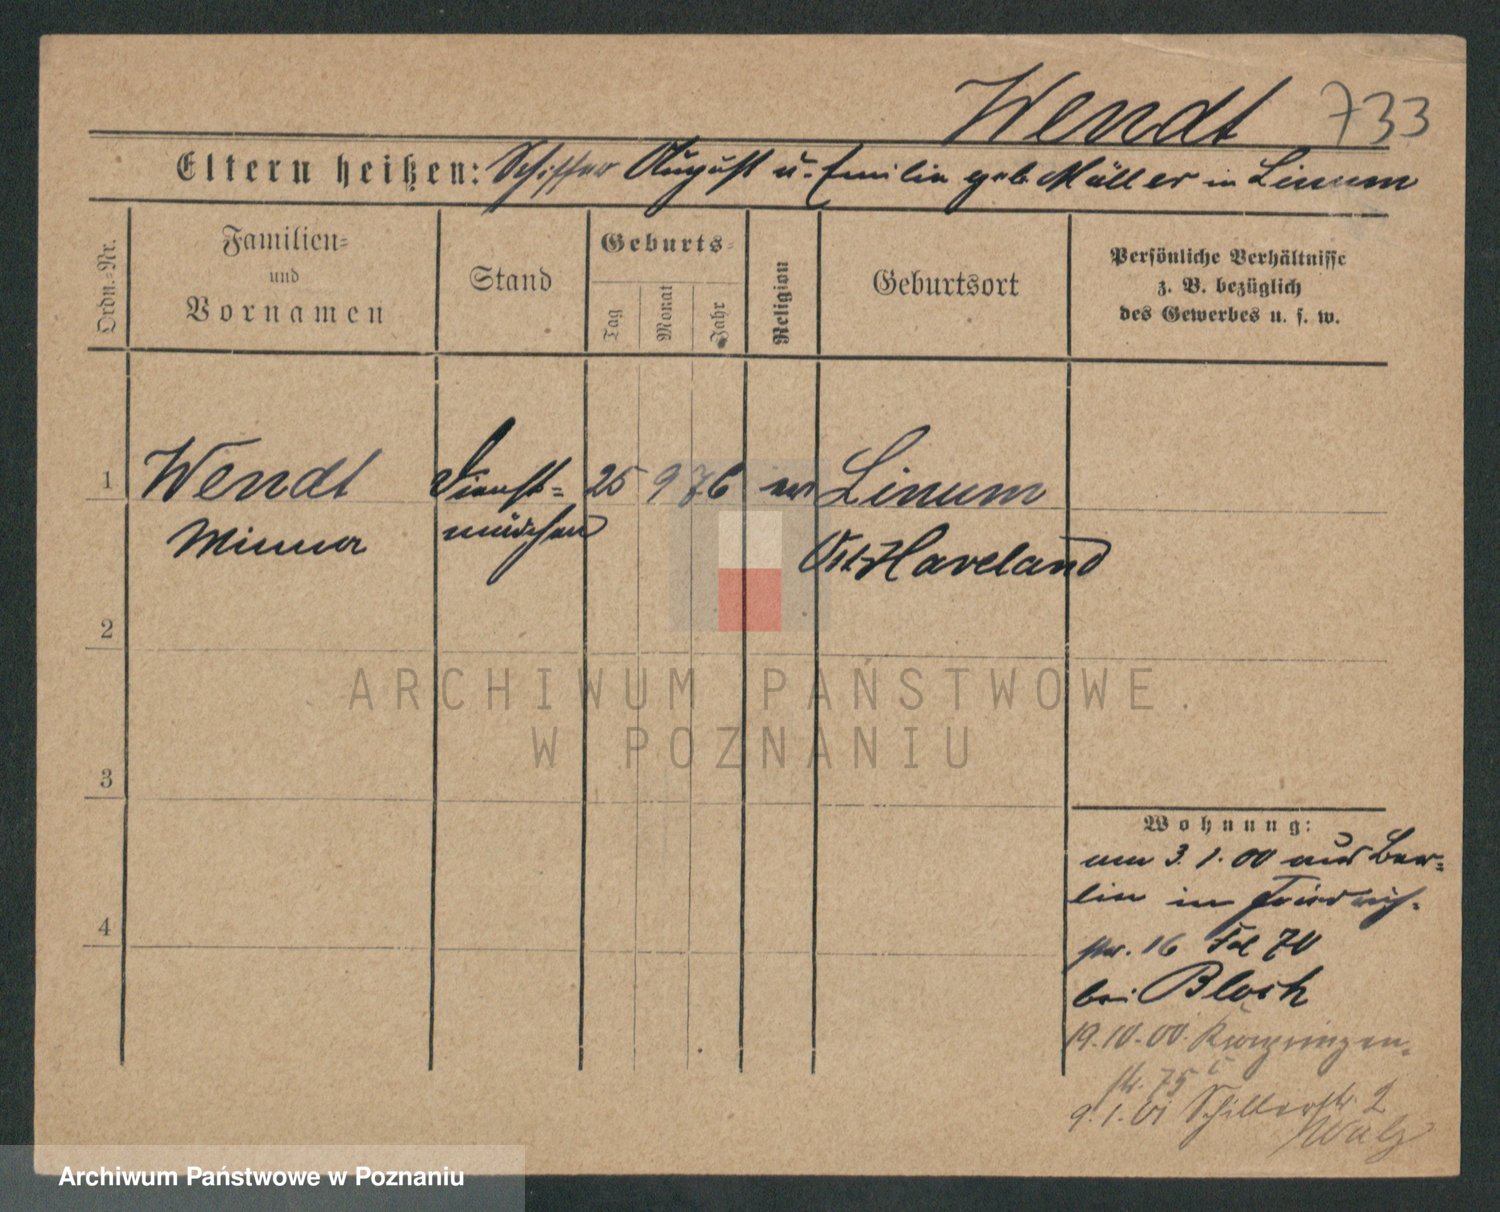 Wendt 733
Eltern heißen: Schiffer August u. Emilie geb. Müller in Linum
Ordn.-Nr.
Familien-
und
Vornamen
Stand
Geburts-
Tag
Monat
Jahr
Religion
Geburtsort
Persönliche Verhältnisse
z. B. bezüglich
des Gewerbes u. s. w.
1 Wendt Dienst= 25 9 76 ev Linum
Minna mädchen Ost-Havelland
2
ARCHIWUM PAŃSTWOWE
W POZNANIU
3
Wohnung:
am 3. 1. 00 aus Ber=
lin in Friedrich-
str. 16 70
bei Bloch
4
19. 10. 00. Kronprinzen-
str. 75
9. 1. 01 Schillerstr. 2
Archiwum Państwowe w Poznaniu